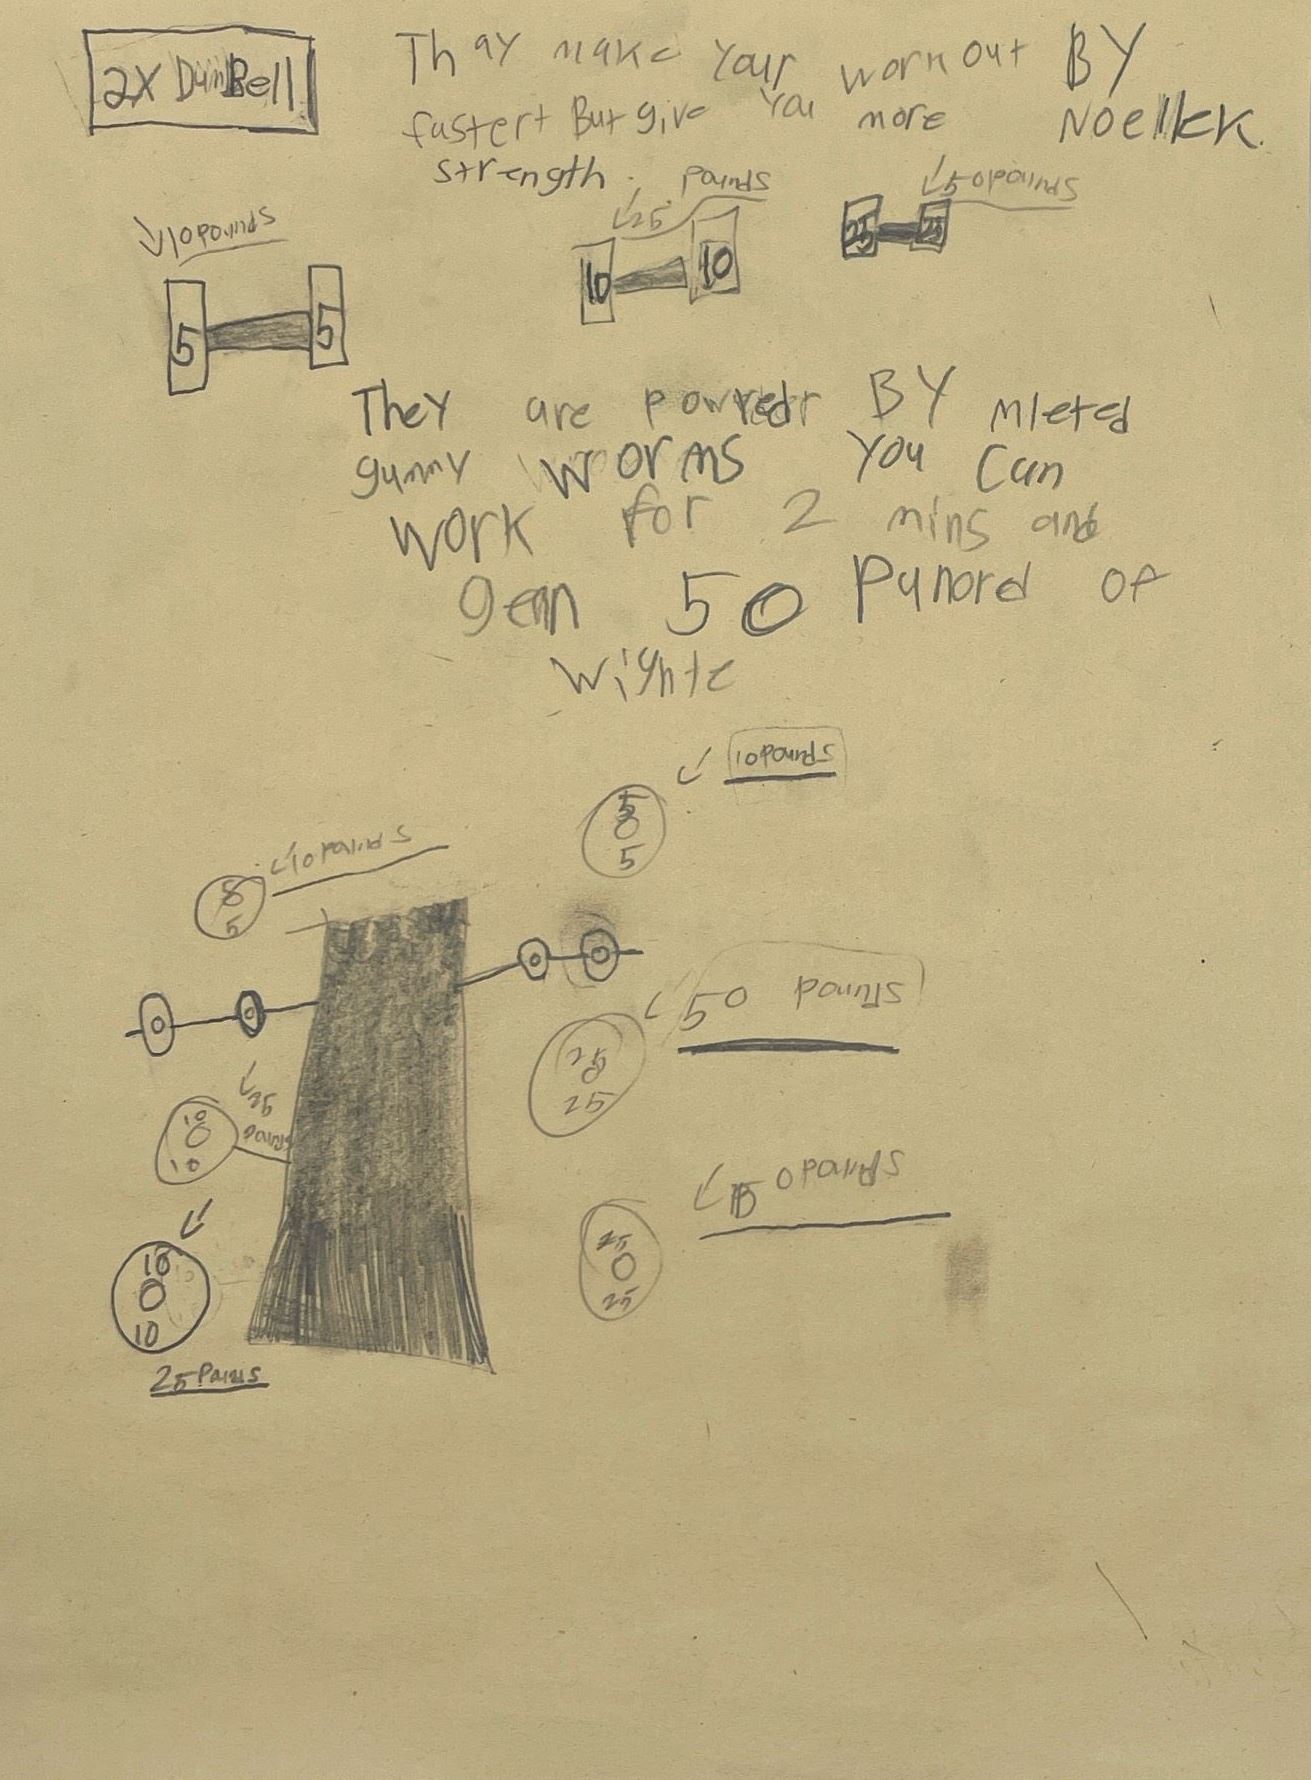 2X DumBell
Thay make Your workout BY
fastert But give You more NOellek.
strength.
10 pounds
25 pounds
50 pounds
5 5
10 10
25 25
They are powredr BY mleted
gummy worms You Can
work for 2 mins and
gean 50 Punord of
wighte
10 pounds
5
0
5
10 pounds
5
0 0
0 0
50 pounds
25
0
25
25
pouns
10
0
10
0 pounds
25
0
25
10
0
10
25 Pouns